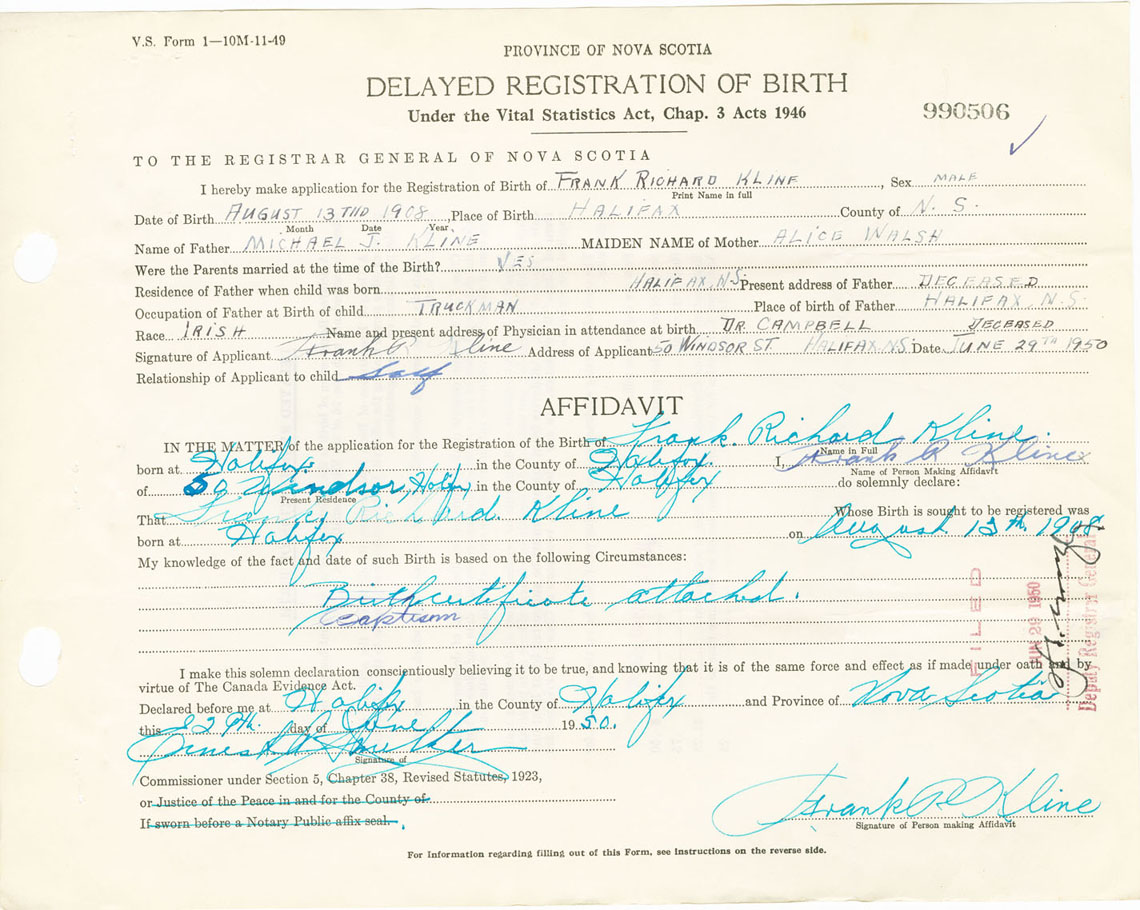 V.S. Form 1—10M-11-49
PROVINCE OF NOVA SCOTIA
DELAYED REGISTRATION OF BIRTH
Under the Vital Statistics Act, Chap. 3 Acts 1946
990506
TO THE REGISTRAR GENERAL OF NOVA SCOTIA
I hereby make application for the Registration of Birth of FRANK RICHARD KLINE, Sex MALE
Print Name in full
Date of Birth AUGUST 13THD 1908, Place of Birth HALIFAX County of N. S.
Month Date Year
Name of Father MICHAEL J. KLINE MAIDEN NAME of Mother ALICE WALSH
Were the Parents married at the time of the Birth? YES
Residence of Father when child was born HALIFAX, N.S. Present address of Father DECEASED
Occupation of Father at Birth of child TRUCKMAN Place of birth of Father HALIFAX N.S.
Race IRISH Name and present address of Physician in attendance at birth DR. CAMPBELL DECEASED
Signature of Applicant Frank R Kline Address of Applicant 50 WINDSOR ST HALIFAX N.S. Date JUNE 29TH 1950
Relationship of Applicant to child Self
AFFIDAVIT
IN THE MATTER of the application for the Registration of the Birth of Frank. Richard Kline.
Name in Full
born at Halifax. in the County of Halifax. I, Frank R Kline
Name of Person Making Affidavit
of 50 Windsor, Halifx in the County of Halifax do solemnly declare:
Present Residence
That Frank Richard Kline Whose Birth is sought to be registered was
born at Halifax on August 13th, 1908.
My knowledge of the fact and date of such Birth is based on the following Circumstances:
Birth certificate attached.
baptism
FILED
JUN 29 1950
Deputy Registrar General
I make this solemn declaration conscientiously believing it to be true, and knowing that it is of the same force and effect as if made under oath and by
virtue of The Canada Evidence Act.
Declared before me at Halifx in the County of Halifax and Province of Nova Scotia
this 29th. day of June 1950.
Signature of
Commissioner under Section 5, Chapter 38, Revised Statutes, 1923,
or Justice of the Peace in and for the County of
If sworn before a Notary Public affix seal.
Frank R Kline
Signature of Person making Affidavit
For Information regarding filling out of this Form, see Instructions on the reverse side.